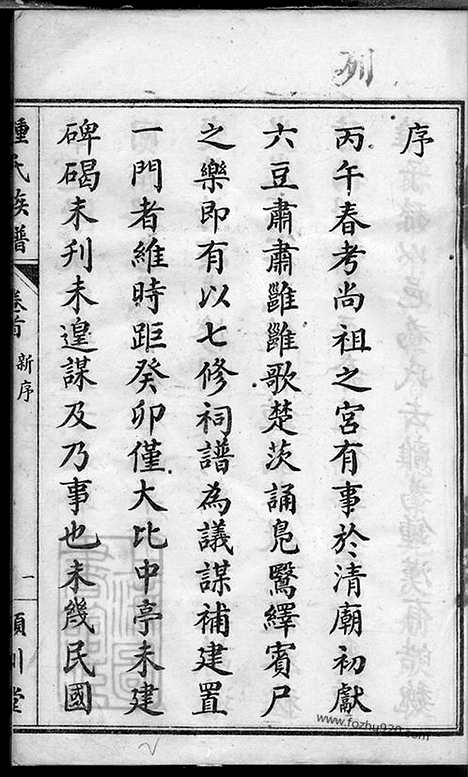 列
序
丙午春考尚祖之宮有事於清廟初獻
六豆肅肅雝雝歌楚茨誦鳧鷖繹賓尸
之樂即有以七修祠譜為議謀補建置
一門者維時距癸卯僅大比中亭未建
碑碣未刋未遑謀及乃事也未幾民國
鍾氏族譜
卷首
新序
一
潁川堂
www.fozhu920.com